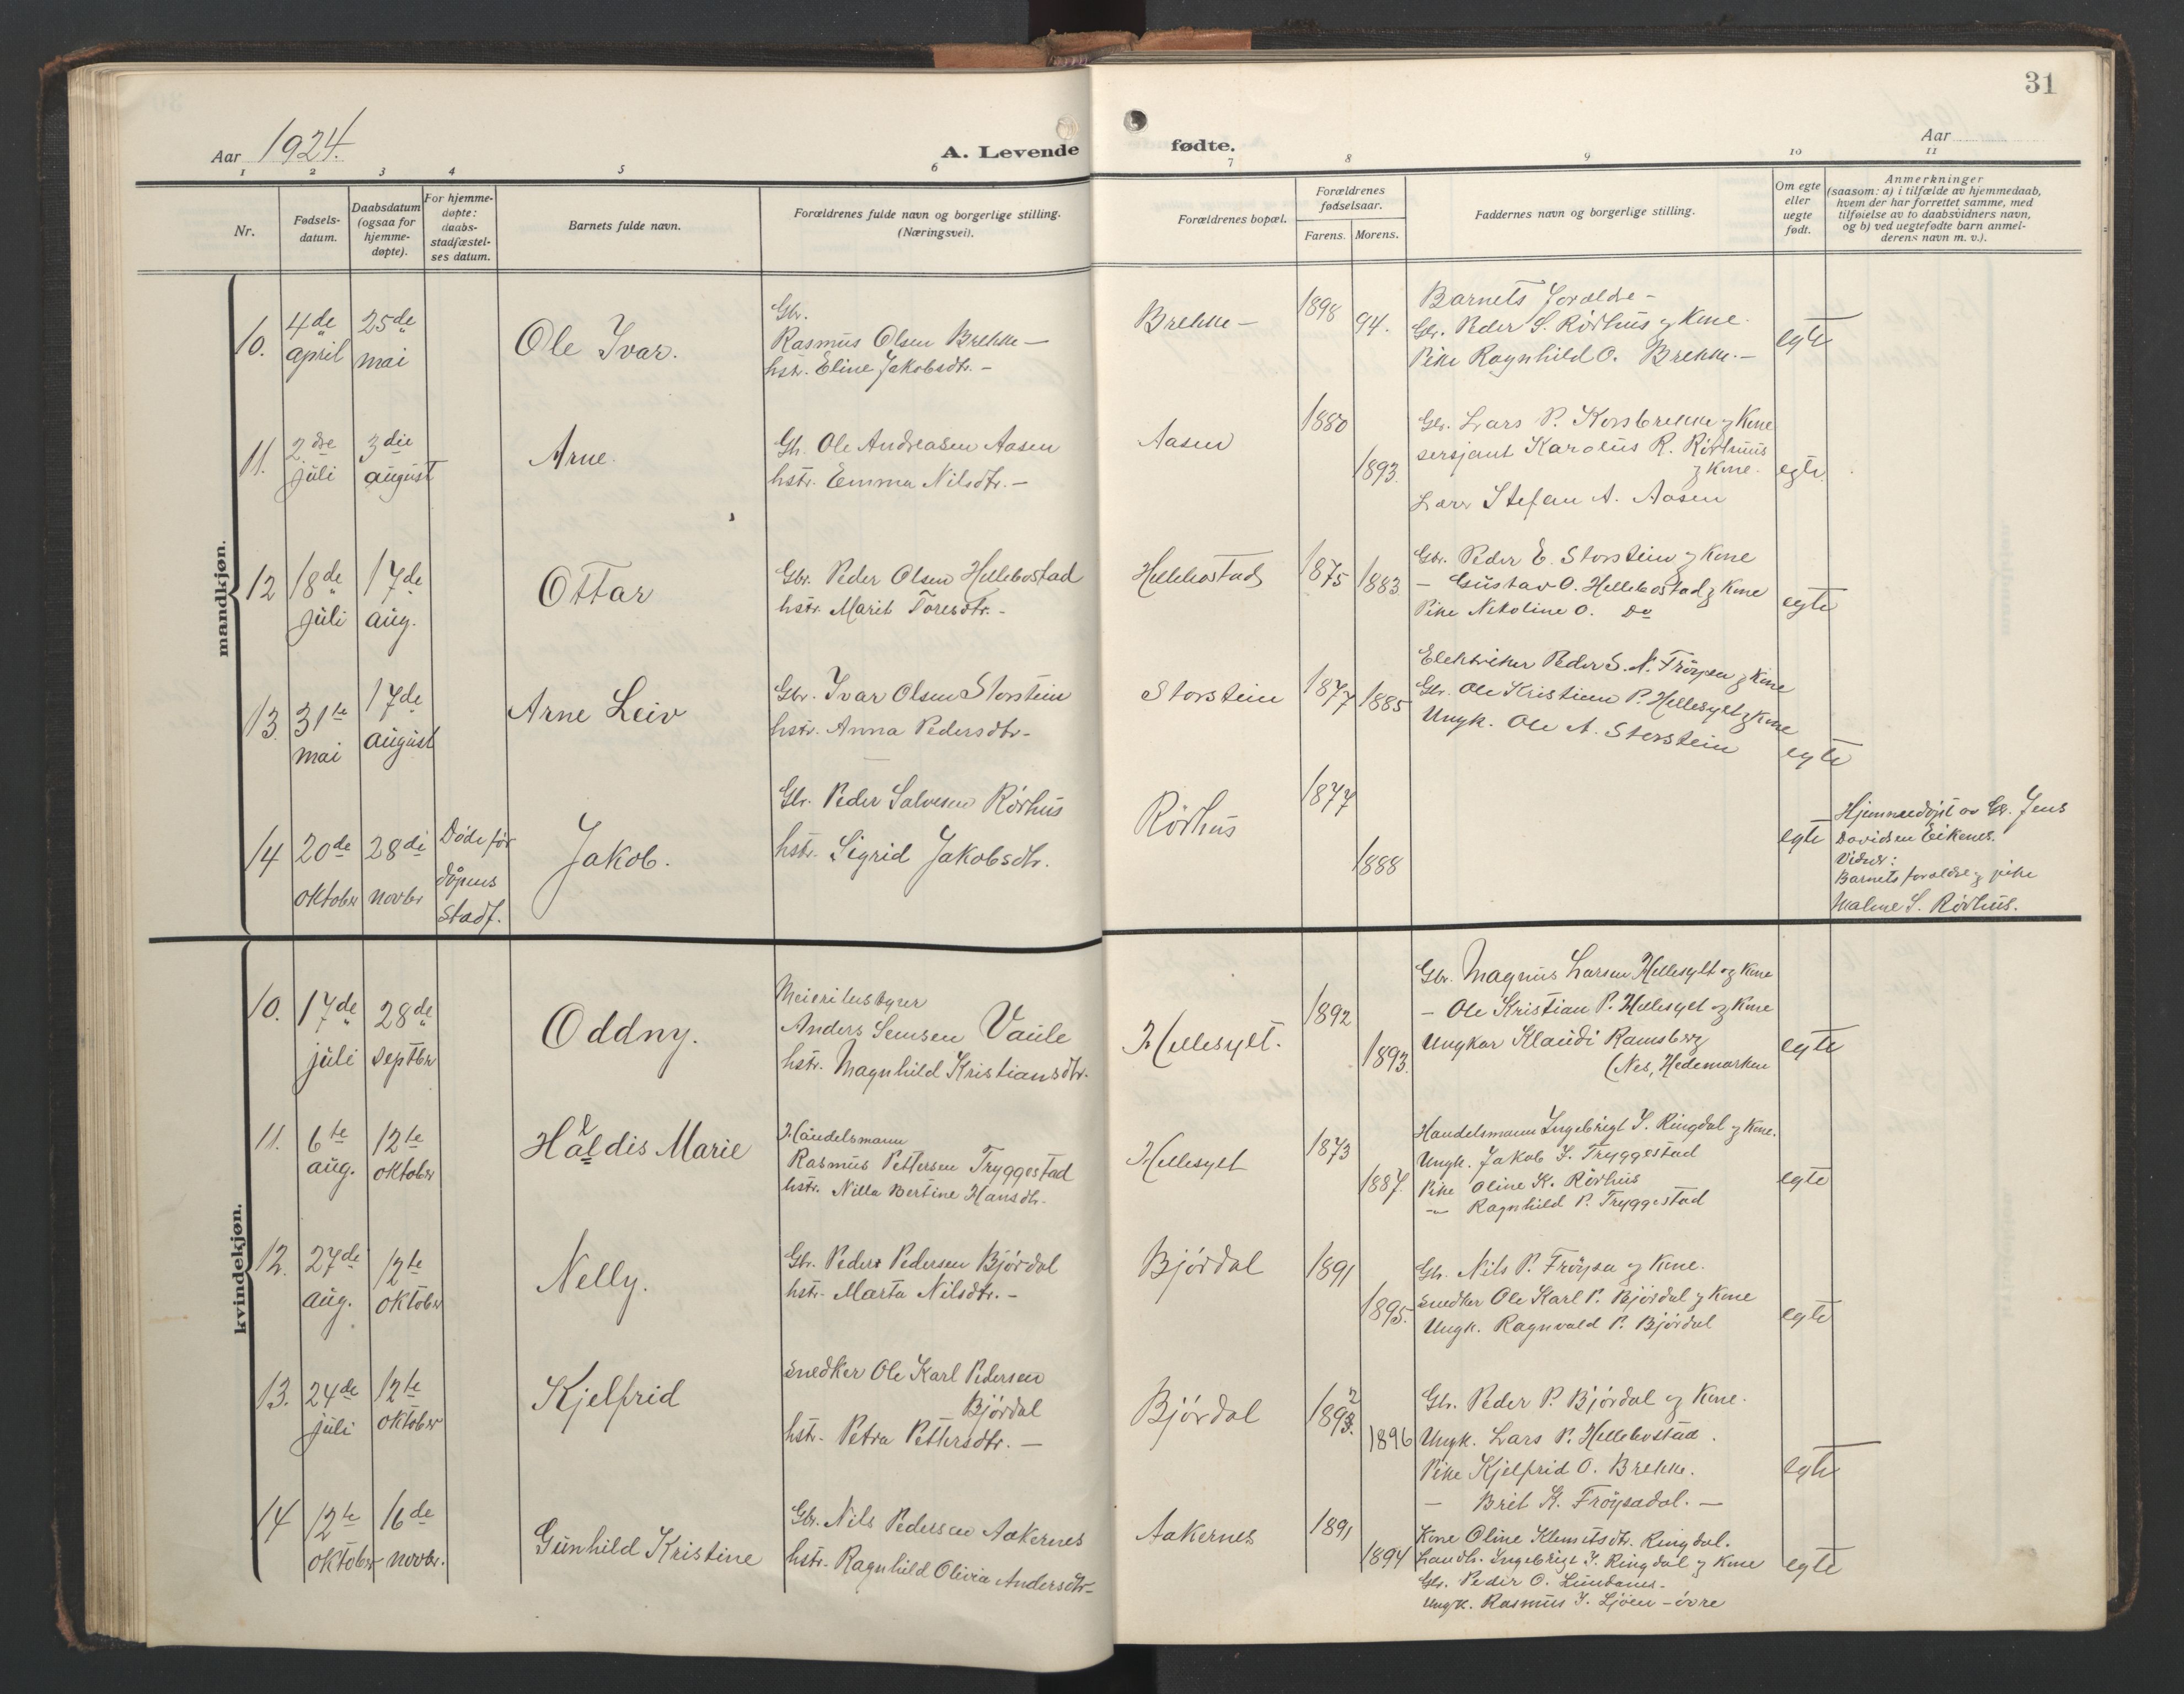 31
Aar 1924.
A. Levende fødte.
Aar
1 2 3 4 5 6 7 8 9 10 11
Nr.
Fødsels-
datum.
Daabsdatum
(ogsaa for
hjemme-
døpte).
For hjemme-
døpte:
daabs-
stadfæstel-
ses datum.
Barnets fulde navn.
Forældrenes fulde navn og borgerlige stilling.
(Næringsvei).
Forældrenes bopæl.
Forældrenes
fødselsaar.
Farens. Morens.
Faddernes navn og borgerlige stilling.
Om egte
eller
uegte
født.
Anmerkninger
(saasom: a) i tilfælde av hjemmedaab,
hvem der har forrettet samme, med
tilføielse av to daabsvidners navn,
og b) ved uegtefødte barn anmel-
derens navn m. v.).
mandkjøn.
10.
4de
april
25de
mai
Ole Ivar.
Gbr.
Rasmus Olsen Brekke —
hstr. Eline Jakobsdtr. –
Brekke –
1898
94.
Barnets Foreldre –
Gbr. Peder S. Rörhus og Kone.
Pike Ragnhild O. Brekke. –
egte
11.
2dre
juli
3die
august
Arne.
Gb. Ole Andreasen Aasen
hstr. Emma Nilsdtr. –
Aasen
1880
1893.
Gbr. Lars P. Korsbrekke og Kone
sersjant Karolus R. Rörhuus
og Kone.
Stefan A. Aasen
egte.
12
18de
juli
17de
aug.
Ottar
Gbr. Peder Olsen Hellebostad
hstr. Marit Toresdtr. –
Hellebostad
1875
1883
Gbr. Peder E. Storstein og Kone
– Gustav O. Hellebostad og Kone
Pike Nikoline O. Do
egte
13.
31te
mai
17de
august
Arne Leiv
Gbr. Ivar Olsen Storstein
hstr. Anna Pedersdtr. –
Storstein
1877
1885
Elektriker Peder S. N. Fröysa og Kone
Gbr. Ole Kristian P. Hellesylt og Kone
Ungk. Ole A. Storstein
egte
14
20de
oktober
28de
novbr
Döde för
döpens
stadf.
Jakob.
Gbr. Peder Salvesen Rörhus
hstr. Sigrid Jakobsdtr.
Rörhus
1877
1888
egte
Hjemmedöpt av Gbr. Jens
Davidsen Eikenes.
Vidner:
Barnets foreldre og pike
Malene S. Rörhus.
kvindekjøn.
10.
17de
juli
28de
septbr
Oddny.
Meieribestyrer
Anders Semsen Vaule
hstr. Magnhild Kristiansdtr.
Hellesylt.
1892
1893.
Gbr. Magnus Larsen Hellesylt og Kone
– Ole Kristian P. Hellesylt og Kone
Ungkar Klaudi Ramsberg
(Nes, Hedemarken
egte
11.
6te
aug.
12te
oktober
Haldis Marie
Handelsmann
Rasmus Pettersen Tryggestad
hstr. Nilla Bertine Hansdtr.
Hellesylt
1873
1887.
Handelsmann Ingebrigt I. Ringdal og Kone.
Ungk. Jakob I. Tryggestad
Pike Oline K. Rörhus
— Ragnhild P. Tryggestad
egte
12.
27de
aug.
12te
oktober
Nelly.
Gbr. Peder Pedersen Björdal
hstr. Marta Nilsdtr. –
Björdal
1891
1895.
Gb. Nils P. Fröysa og Kone.
snedker Ole Karl P. Björdal og Kone
Ungk. Ragnvald P. Björdal
egte
13.
24de
juli
12te
oktober
Kjelfrid
snedker Ole Karl Pedersen
Björdal
hstr. Petra Pettersdtr. —
Björdal
1892
1896
Gb. Peder P. Björdal og Kone.
Ungk. Lars P. Hellebostad.
Pike Kjelfrid O. Brekke.
– Brit K. Fröysadal. –
egte
14
12te
oktober
16de
novbr.
Gunhild Kristine
Gbr. Nils Pedersen Aakernes
hstr. Ragnhild Olivia Andersdtr. –
Aakernes
1891
1894
Kone Oline Klemetsdtr. Ringdal.
Landh. Ingebrigt I. Ringdal og Kone
Gbr. Peder O. Lundanes.
Ungk. Rasmus I. Ljöen – övre
egte